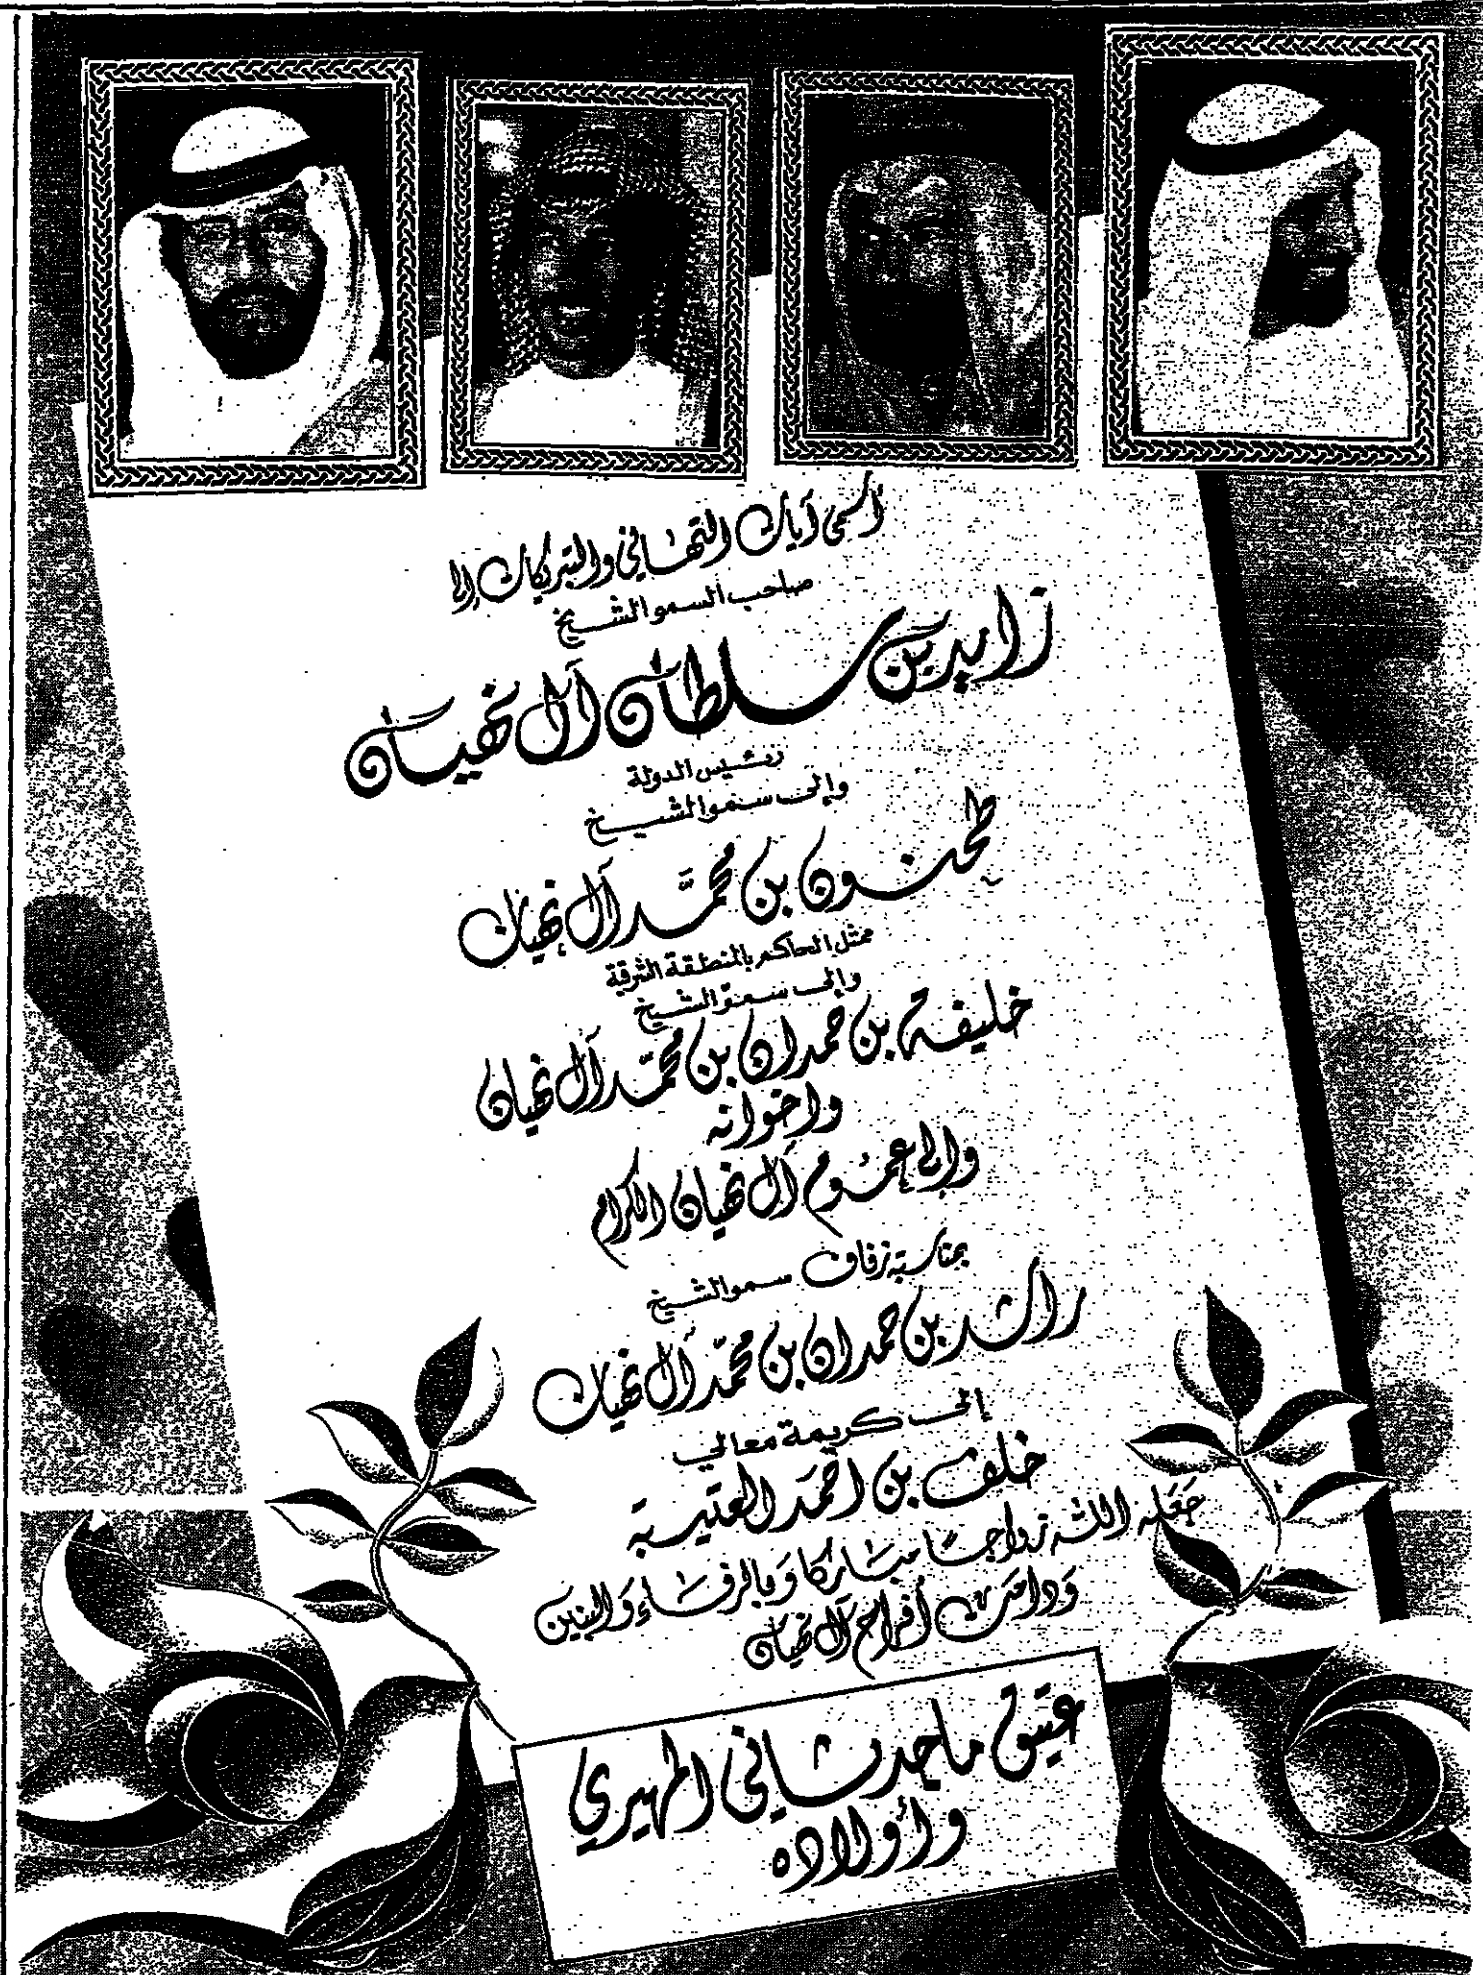 أسمى آيات التهاني والتبريكات إلى
صاحب السمو الشيخ
زايد بن سلطان آل نهيان
رئيس الدولة
وإلى سمو الشيخ
طحنون بن محمَّد آل نهيان
ممثل الحاكم بالمنطقة الشرقية
وإلى سموّ الشيخ
خليفة بن حمدان بن محمّد آل نهيان
واخوانه
وإلى عموم آل نهيان الكرام
بمناسبة زفاف سمو الشيخ
راشد بن حمدان بن محمّد آل نهيان
إلى كريمة معالي
خلف بن احمَد العتيبة
جَعَله اللّه زواجًا مباركا وَبالرفاء وَالبنين
وَدامت أفراح آل نهيان
عتيق ماجد ثاني المهيري
وأولاده